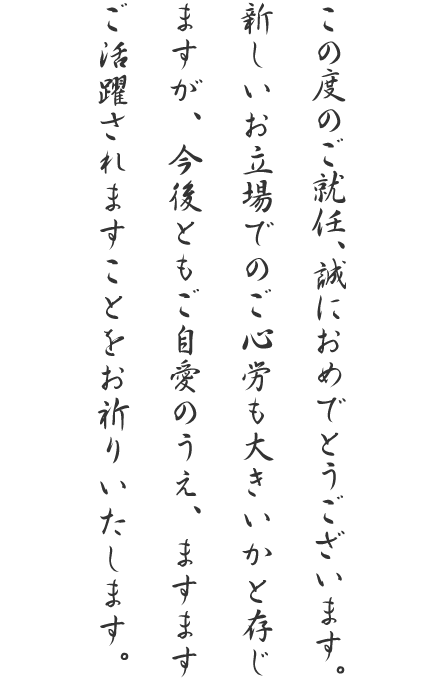 この度のご就任、誠におめでとうございます。
新しいお立場でのご心労も大きいかと存じ
ますが、今後ともご自愛のうえ、ますます
ご活躍されますことをお祈りいたします。